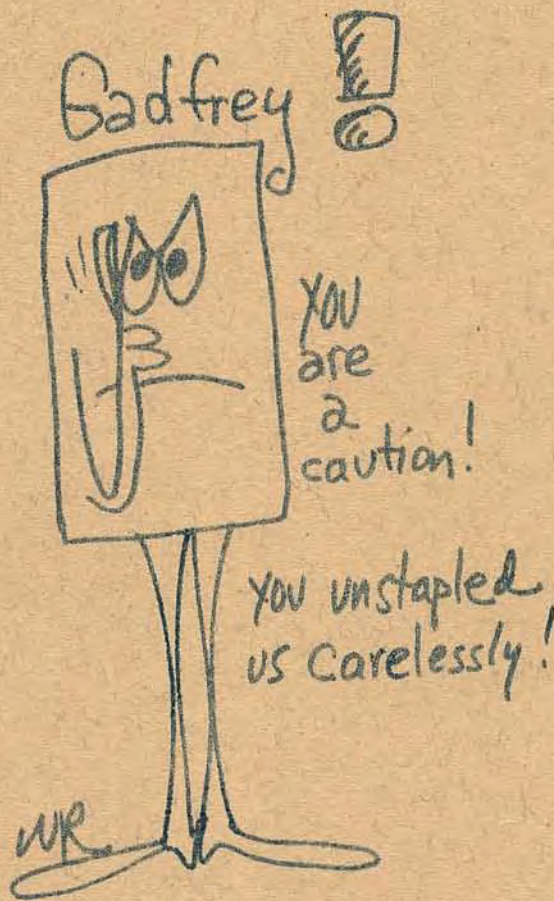 Gadfrey!
YOU
are
a
caution!
You unstapled
us carelessly!
WR